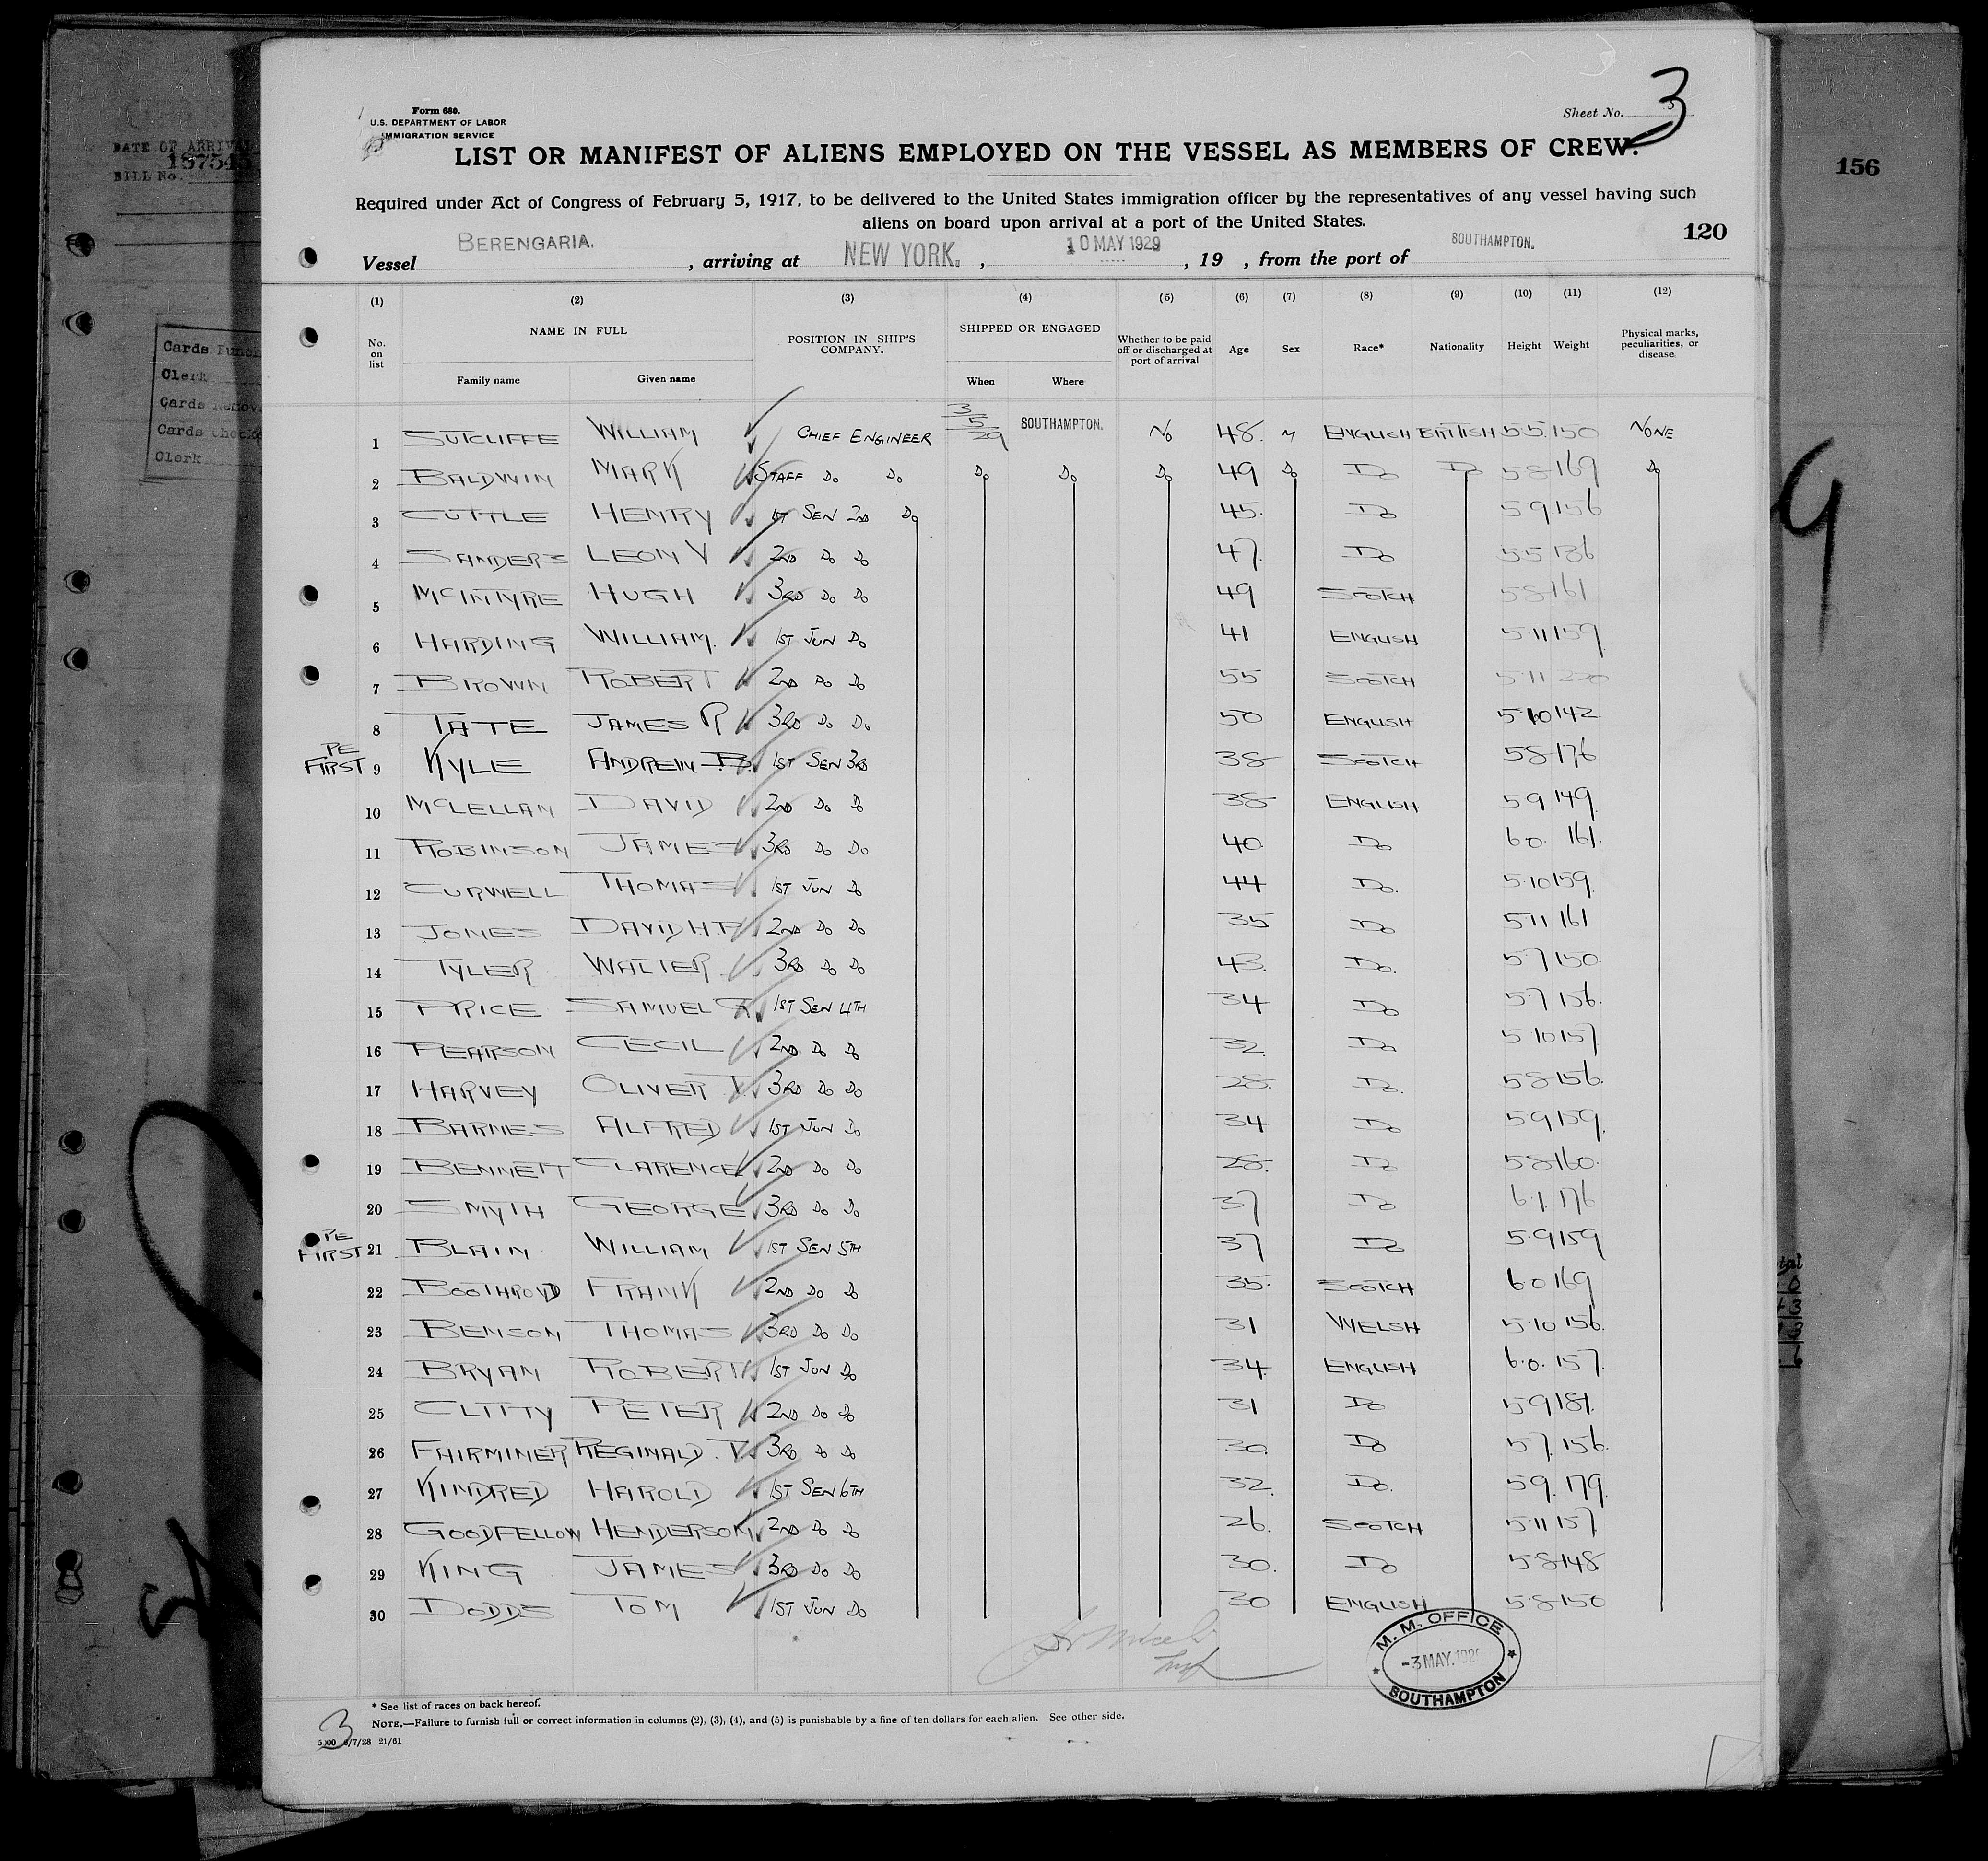 Form 680.
U.S. DEPARTMENT OF LABOR
IMMIGRATION SERVICE
Sheet No. 3
LIST OR MANIFEST OF ALIENS EMPLOYED ON THE VESSEL AS MEMBERS OF CREW.
Required under Act of Congress of February 5, 1917, to be delivered to the United States immigration officer by the representatives of any vessel having such
aliens on board upon arrival at a port of the United States.
120
Vessel BERENGARIA. , arriving at NEW YORK. , 10 MAY 1929 , 19 , from the port of SOUTHAMPTON.
(1) (2) (3) (4) (5) (6) (7) (8) (9) (10) (11) (12)
No. on list NAME IN FULL Family name Given name POSITION IN SHIP'S COMPANY. SHIPPED OR ENGAGED When Where Whether to be paid off or discharged at port of arrival Age Sex Race* Nationality Height Weight Physical marks, peculiarities, or disease.
1 SUTCLIFFE WILLIAM CHIEF ENGINEER 3/5/29 SOUTHAMPTON. No 48. M ENGLISH BRITISH 5.5. 150 NONE
2 BALDWIN MARK STAFF Do Do Do Do Do 49 Do Do Do 5 8 169 Do
3 CUTTLE HENRY 1ST SEN 2ND Do 45. Do 5 9 156
4 SANDERS LEON V 2ND Do Do 47. Do 5 5 136
5 McINTYRE HUGH 3RD Do Do 49 SCOTCH 5 8 161
6 HARDING WILLIAM. 1ST JUN Do 41 ENGLISH 5.11 159
7 BROWN ROBERT 2ND Do Do 55 SCOTCH 5.11 220
8 TATE JAMES R 3RD Do Do 50 ENGLISH 5.10 142
PE FIRST 9 KYLE ANDREW B. 1ST SEN 3RD 38 SCOTCH 5 8 176
10 McLELLAN DAVID 2ND Do Do 38 ENGLISH 5 9 149.
11 ROBINSON JAMES 3RD Do Do 40 Do 6 0. 161.
12 CURWELL THOMAS 1ST JUN Do 44 Do. 5.10 159.
13 JONES DAVID H.P. 2ND Do Do 35 Do 5 11 161
14 TYLER WALTER. 3RD Do Do 43. Do. 5.7 150
15 PRICE SAMUEL 1ST SEN 4TH 34 Do 5.7 156.
16 PEARSON CECIL 2ND Do Do 32. Do 5 10 157
17 HARVEY OLIVER 3RD Do Do 28. Do. 5 8 156.
18 BARNES ALFRED 1ST JUN Do 34 Do 5 9 159.
19 BENNETT CLARENCE 2ND Do Do 28. Do 5 8 160.
20 SMYTH GEORGE 3RD Do Do 37 Do 6.1. 176
PE FIRST 21 BLAIN WILLIAM 1ST SEN 5TH 37 Do 5.9 159
22 BOOTHROYD FRANK 2ND Do Do 35. SCOTCH 6.0 169
23 BENSON THOMAS 3RD Do Do 31 WELSH 5.10 156.
24 BRYAN ROBERT 1ST JUN Do 34 ENGLISH 6.0. 157.
25 CLITTY PETER 2ND Do Do 31 Do 5 9 181.
26 FAIRMINER REGINALD. 3RD Do Do 30. Do 5 7. 156.
27 KINDRED HAROLD 1ST SEN 6TH 32. Do. 5 9. 179.
28 GOODFELLOW HENDERSON 2ND Do Do 26. SCOTCH 5.11 157
29 KING JAMES 3RD Do Do 30. Do 5.8 148
30 DODDS TOM 1ST JUN Do 30 ENGLISH 5.8 150
M. M. OFFICE
-3 MAY. 1929
SOUTHAMPTON
* See list of races on back hereof.
NOTE.—Failure to furnish full or correct information in columns (2), (3), (4), and (5) is punishable by a fine of ten dollars for each alien. See other side.
3
5000 6/7/28 21/61
DATE OF ARRIVAL
BILL No.
Cards
Clerk
Cards
Cards
Clerk
156
9